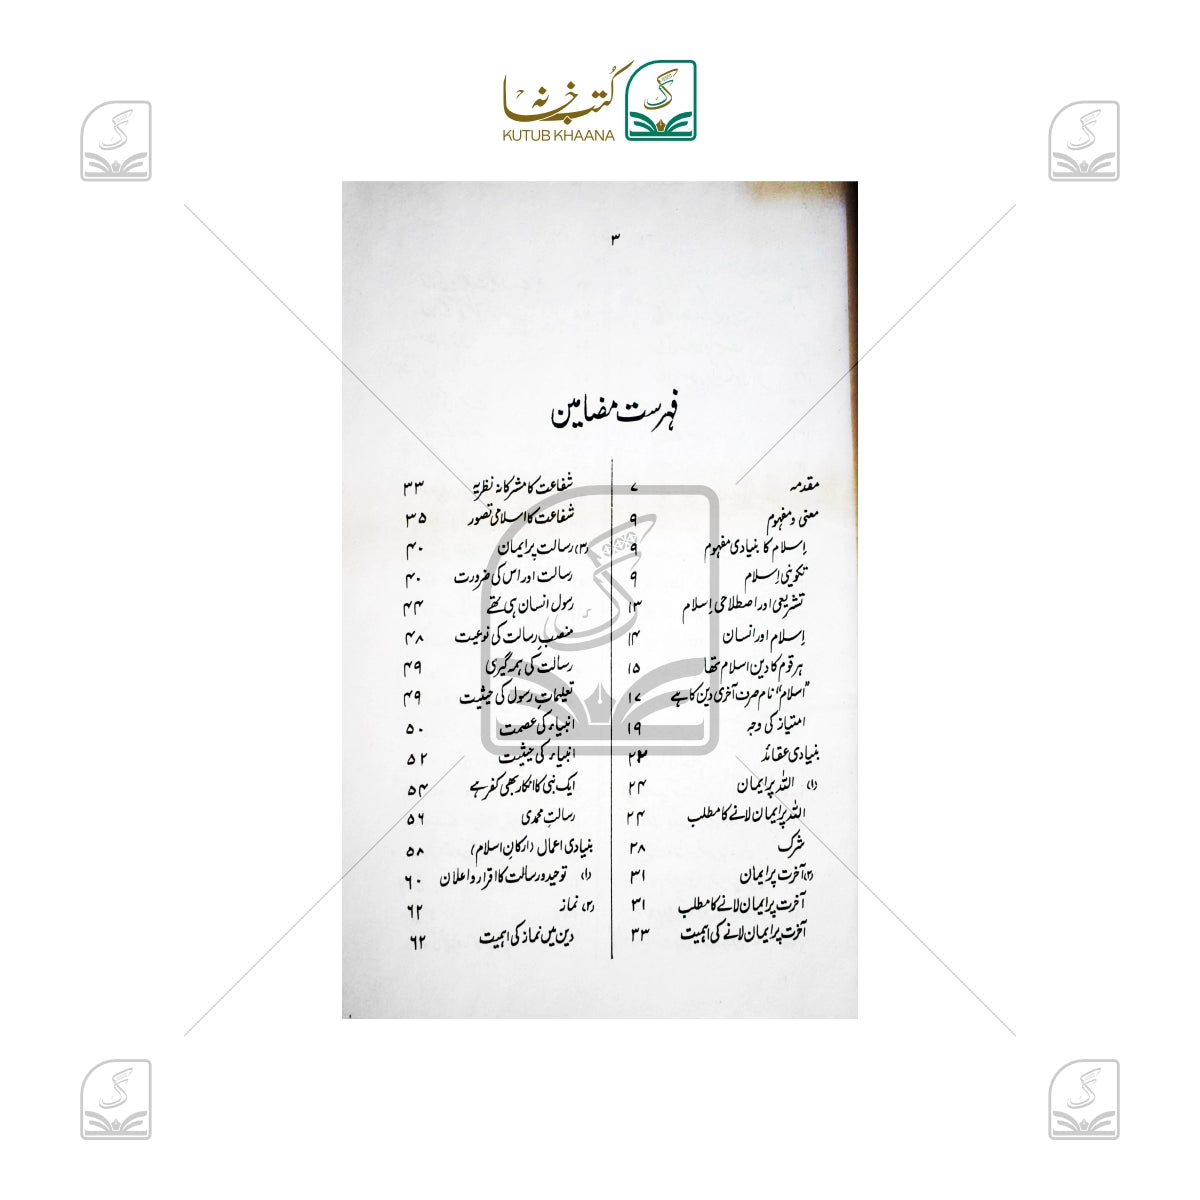 کتب خانہ
KUTUB KHAANA
۳
فہرست مضامین
مقدمہ ۷
معنی و مفہوم ۹
اسلام کا بنیادی مفہوم ۹
تکوینی اسلام ۹
تشریعی اور اصطلاحی اسلام ۱۳
اسلام اور انسان ۱۴
ہر قوم کا دین اسلام تھا ۱۵
"اسلام" نام صرف آخری دین کا ہے ۱۷
امتیاز کی وجہ ۱۹
بنیادی عقائد ۲۲
(۱) اللہ پر ایمان ۲۴
اللہ پر ایمان لانے کا مطلب ۲۴
شرک ۲۸
(۲) آخرت پر ایمان ۳۱
آخرت پر ایمان لانے کا مطلب ۳۱
آخرت پر ایمان لانے کی اہمیت ۳۳
شفاعت کا مشرکانہ نظریہ ۳۳
شفاعت کا اسلامی تصور ۳۵
(۳) رسالت پر ایمان ۴۰
رسالت اور اس کی ضرورت ۴۰
رسول انسان ہی تھے ۴۴
منصبِ رسالت کی نوعیت ۴۸
رسالت کی ہمہ گیری ۴۹
تعلیماتِ رسول کی حیثیت ۴۹
انبیاء کی عصمت ۵۰
انبیاء کی حیثیت ۵۲
ایک نبی کا انکار بھی کفر ہے ۵۴
رسالتِ محمدی ۵۶
بنیادی اعمال (ارکانِ اسلام) ۵۸
(۱) توحید و رسالت کا اقرار و اعلان ۶۰
(۲) نماز ۶۲
دین میں نماز کی اہمیت ۶۲